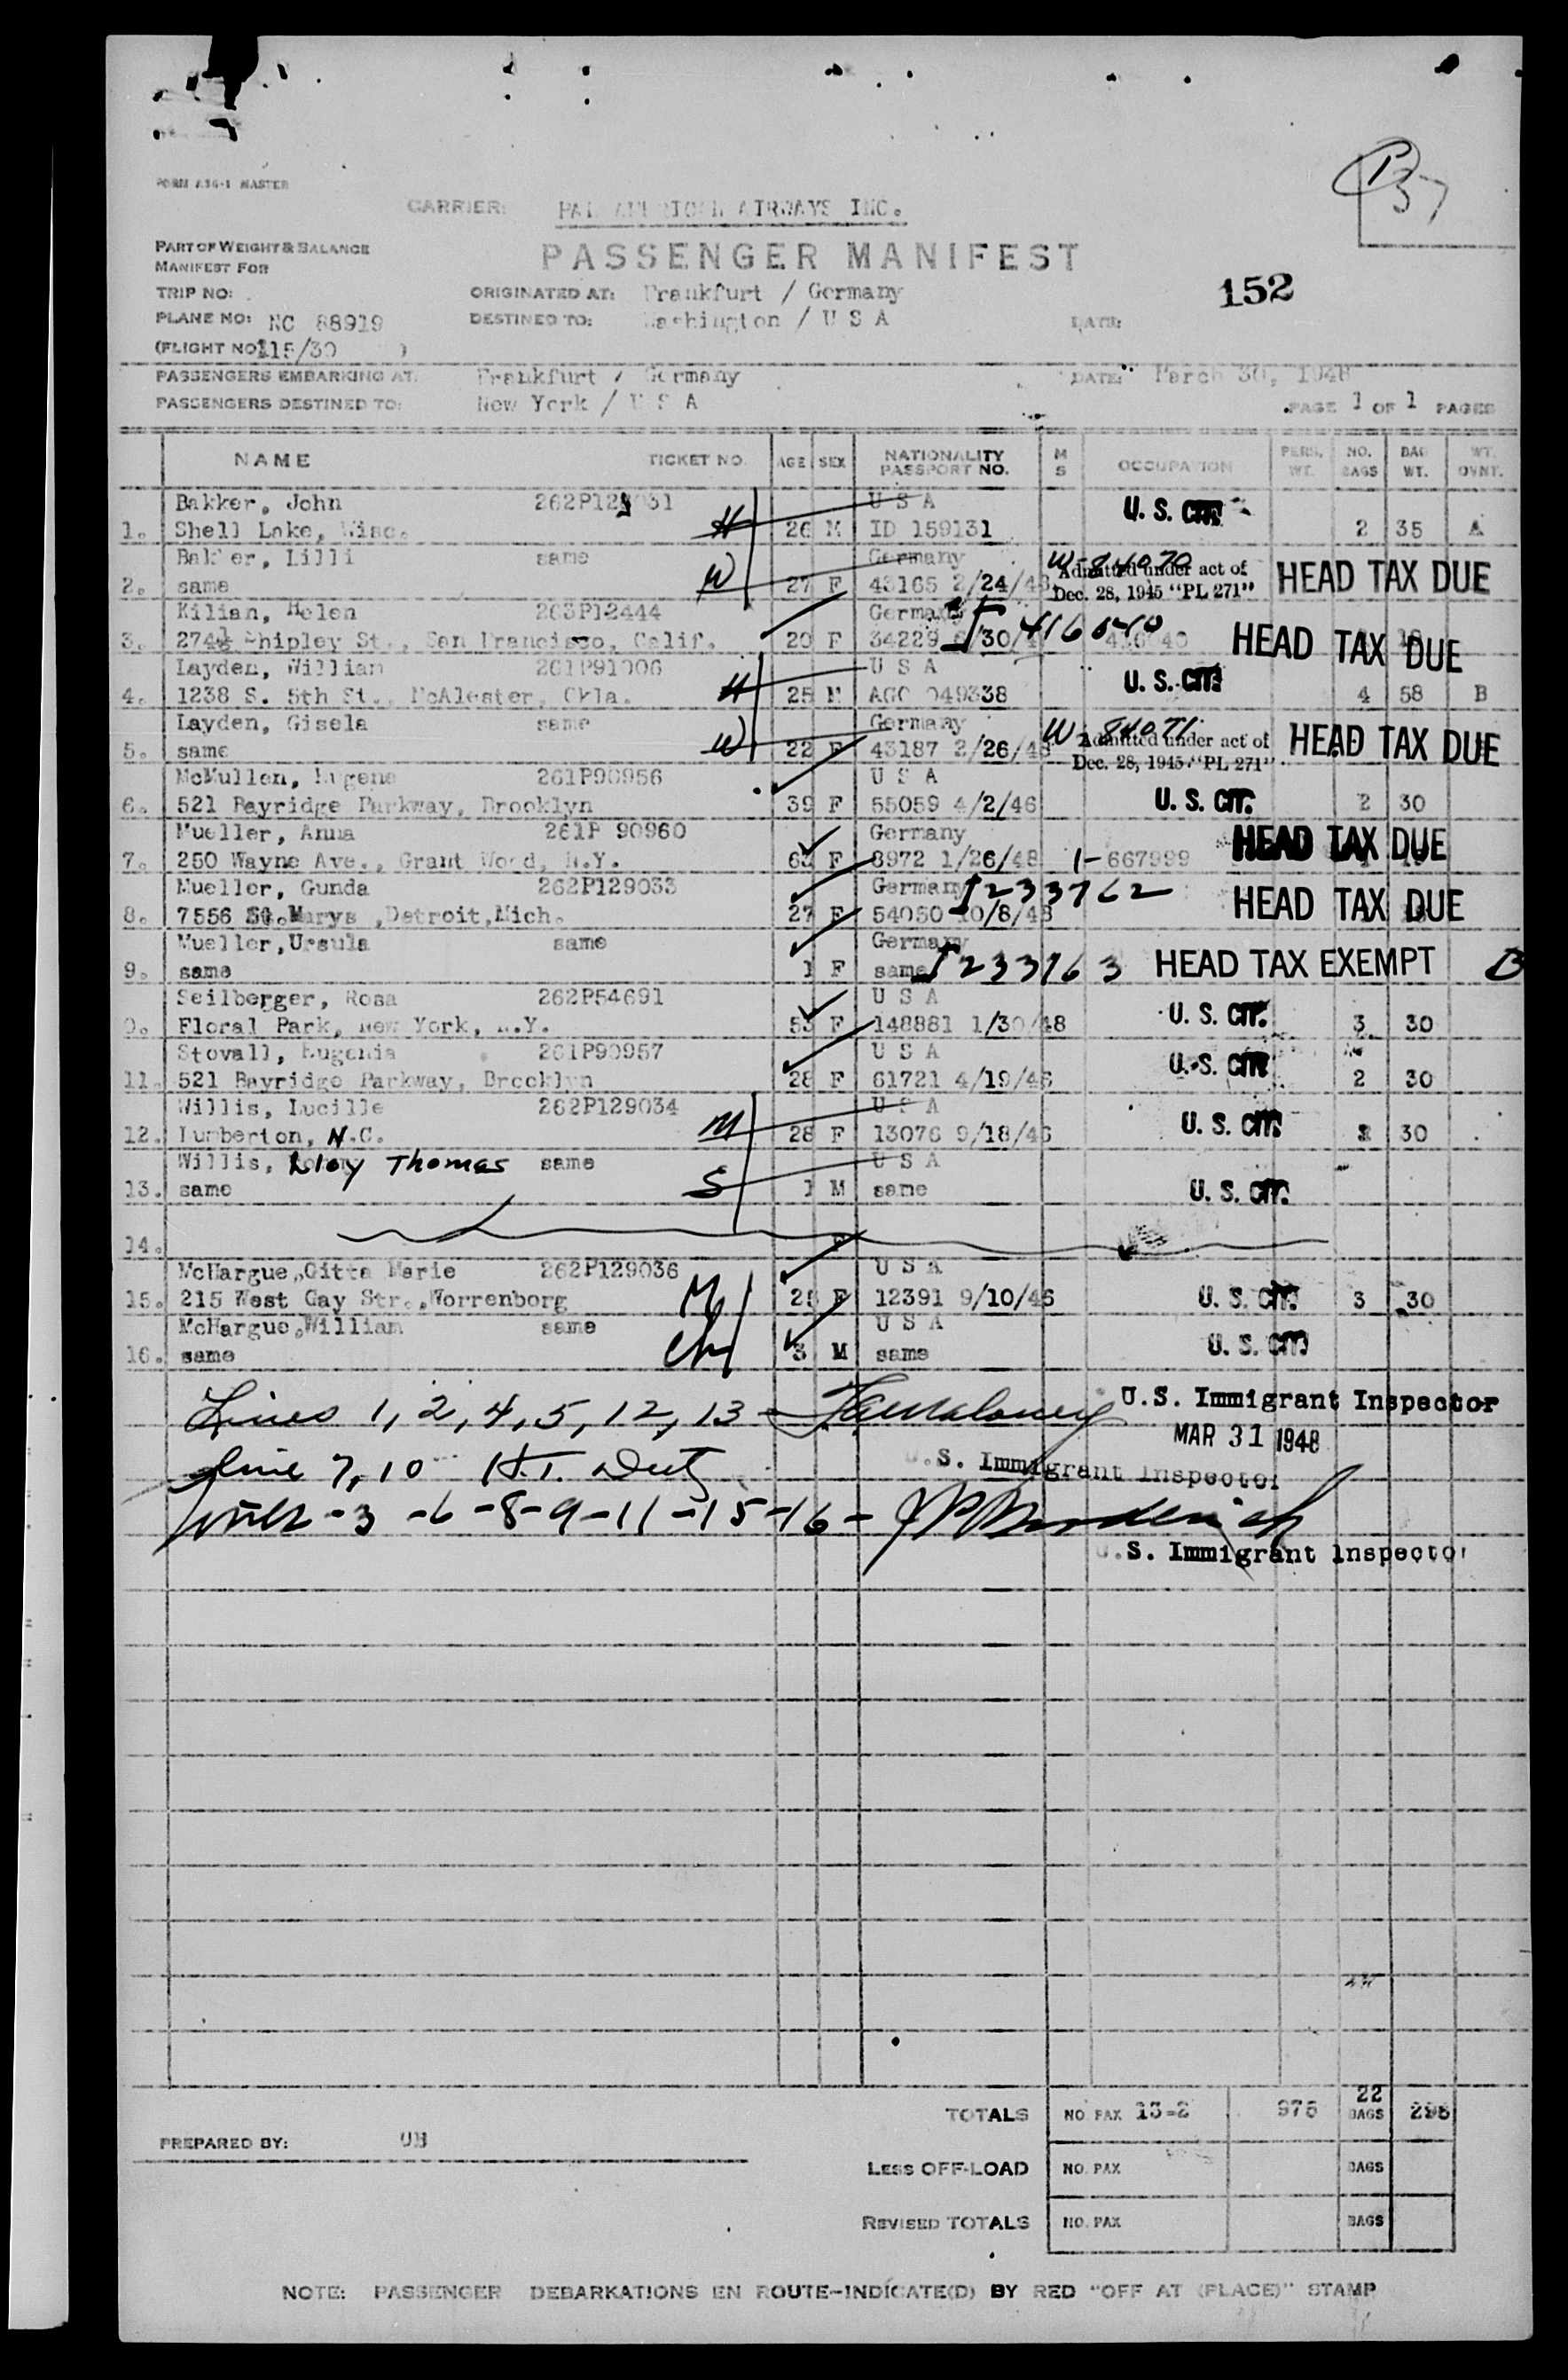 P37
FORM A36-1 MASTER
CARRIER: PAN AMERICAN AIRWAYS INC.
PART OF WEIGHT & BALANCE
MANIFEST FOR
PASSENGER MANIFEST
152
TRIP NO: ORIGINATED AT: Frankfurt / Germany
PLANE NO: NC 88919 DESTINED TO: Washington / U S A DATE:
(FLIGHT NO 115/30 )
PASSENGERS EMBARKING AT: Frankfurt / Germany DATE: March 30, 1948
PASSENGERS DESTINED TO: New York / U S A PAGE 1 OF 1 PAGES
NAME TICKET NO. AGE SEX NATIONALITY PASSPORT NO. M S OCCUPATION PERS. WT. NO. BAGS BAG WT. WT. OVNT.
Bakker, John U S A
1. Shell Lake, Wisc. H 26 M ID 159131 U. S. CIT. 2 35 A
Bakker, Lilli same Germany W-84070
2. same W 27 F 43165 2/24/48 Admitted under act of Dec. 28, 1945 "PL 271" HEAD TAX DUE
Kilian, Helen 263P12444 Germany I 416040
3. 274½ Shipley St., San Francisco, Calif. 20 F 34229 /30/ HEAD TAX DUE
Layden, William 261P91006 U S A
4. 1238 S. 5th St., McAlester, Okla. H 25 M AGO 049338 U. S. CIT. 4 58 B
Layden, Gisela same Germany W-84071
5. same W 22 F 43187 2/26/48 Admitted under act of Dec. 28, 1945 "PL 271" HEAD TAX DUE
McMullen, Eugene 261P90956 U S A
6. 521 Bayridge Parkway, Brooklyn 39 F 55059 4/2/46 U. S. CIT. 2 30
Mueller, Anna 261P 90960 Germany
7. 250 Wayne Ave., Grant Wood, N.Y. 63 F 8972 1/26/48 1-667999 HEAD TAX DUE
Mueller, Gunda 262P129033 Germany I 233762
8. 7556 St.Marys ,Detroit,Mich. 27 F 54050 10/8/48 HEAD TAX DUE
Mueller,Ursula same Germany
9. same 1 F same I 233763 HEAD TAX EXEMPT B
Seilberger, Rosa 262P54691 U S A
0. Floral Park, New York, N.Y. 53 F 148881 1/30/48 U. S. CIT. 3 30
Stovall, Eugenia 261P90957 U S A
11. 521 Bayridge Parkway, Brooklyn 28 F 61721 4/19/46 U. S. CIT. 2 30
Willis, Lucille 262P129034 U S A
12. Lumberton, N.C. M 28 F 13076 9/18/46 U. S. CIT. 30
Willis, Thomas same U S A
13. same S 1 M same U. S. CIT.
14.
McHargue,Gitta Marie 262P129036 U S A
15. 215 West Gay Str.,Worrenborg M F 12391 9/10/46 U. S. CIT. 3 30
McHargue,William same U S A
16. same Ch 3 M same U. S. CIT.
Lines 1, 2, 4, 5, 12, 13 - U.S. Immigrant Inspector
MAR 31 1948
Line 7, 10 U.S. Immigrant Inspector
Lines - 3 - 6 - 8 - 9 - 11 - 15 - 16 -
U.S. Immigrant Inspector
TOTALS NO. PAX 13-2 975 22 BAGS 298
PREPARED BY: UH
LESS OFF-LOAD NO. PAX BAGS
REVISED TOTALS NO. PAX BAGS
NOTE: PASSENGER DEBARKATIONS EN ROUTE-INDICATE(D) BY RED "OFF AT (PLACE)" STAMP